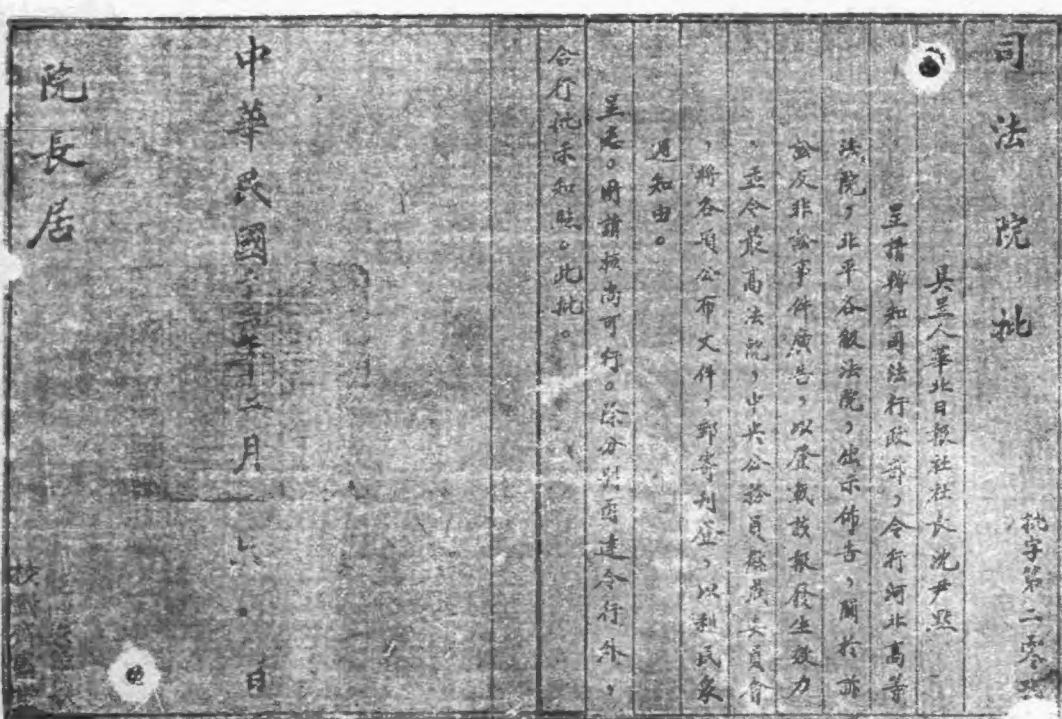 司法院批
批字第二零
具呈人華北日報社社長沈尹默
呈請轉知司法行政部，令行河北高等
法院，北平各級法院，出示佈告，關於訴
訟及非訟事件廣告，以登載該報發生效力
，並令最高法院，中央公務員懲戒委員會
，將各項公布文件，郵寄刊登，以利民眾
週知由。
呈悉。所請核尚可行。除分別函達令行外，
合行批示知照。此批。
中華民國二十年十二月六日
院長居
校對